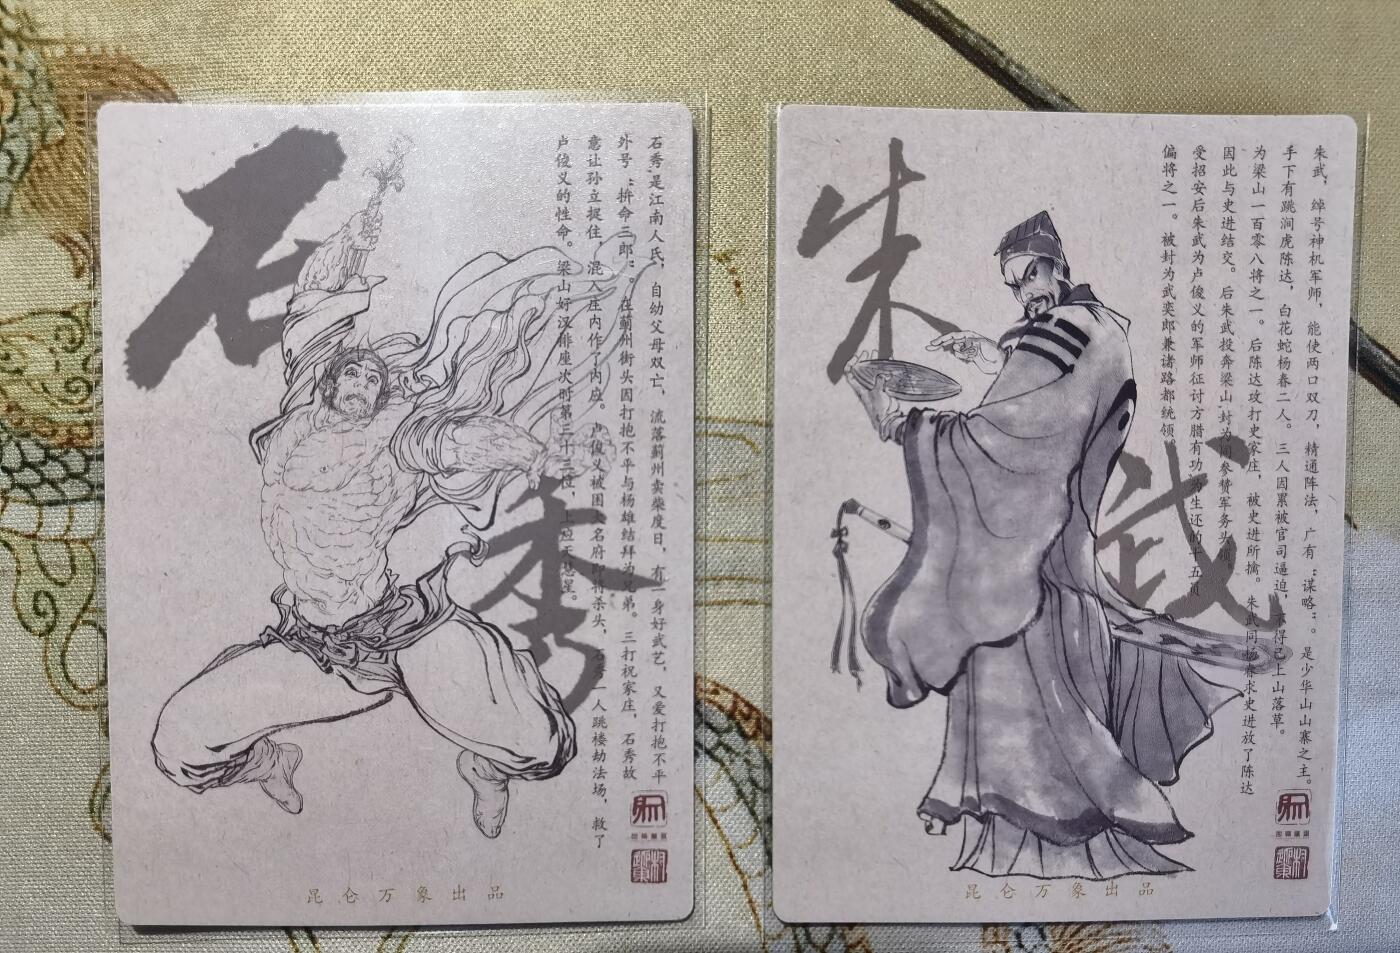 石秀
石秀,是江南人氏,自幼父母双亡,流落蓟州卖柴度日,有一身好武艺,又爱打抱不平
外号:“拚命三郎”。在蓟州街头因打抱不平与杨雄结拜为兄弟。三打祝家庄,石秀故
意让孙立捉住,混入庄内作了内应。卢俊义被困大名府即将杀头,石秀一人跳楼劫法场,救了
卢俊义的性命。梁山好汉排座次时第三十三位,上应天慧星。
昆仑万象出品
朱武
朱武,绰号神机军师,能使两口双刀,精通阵法,广有“谋略”。是少华山山寨之主。
手下有跳涧虎陈达,白花蛇杨春二人。三人因累被官司逼迫,不得已上山落草。
为梁山一百零八将之一。后陈达攻打史家庄,被史进所擒。朱武同杨春求史进放了陈达
因此与史进结交。后朱武投奔梁山,封为同参赞军务头领。
受招安后朱武为卢俊义的军师征讨方腊有功为生还的十五员
偏将之一。被封为武奕郎兼诸路都统领。
昆仑万象出品